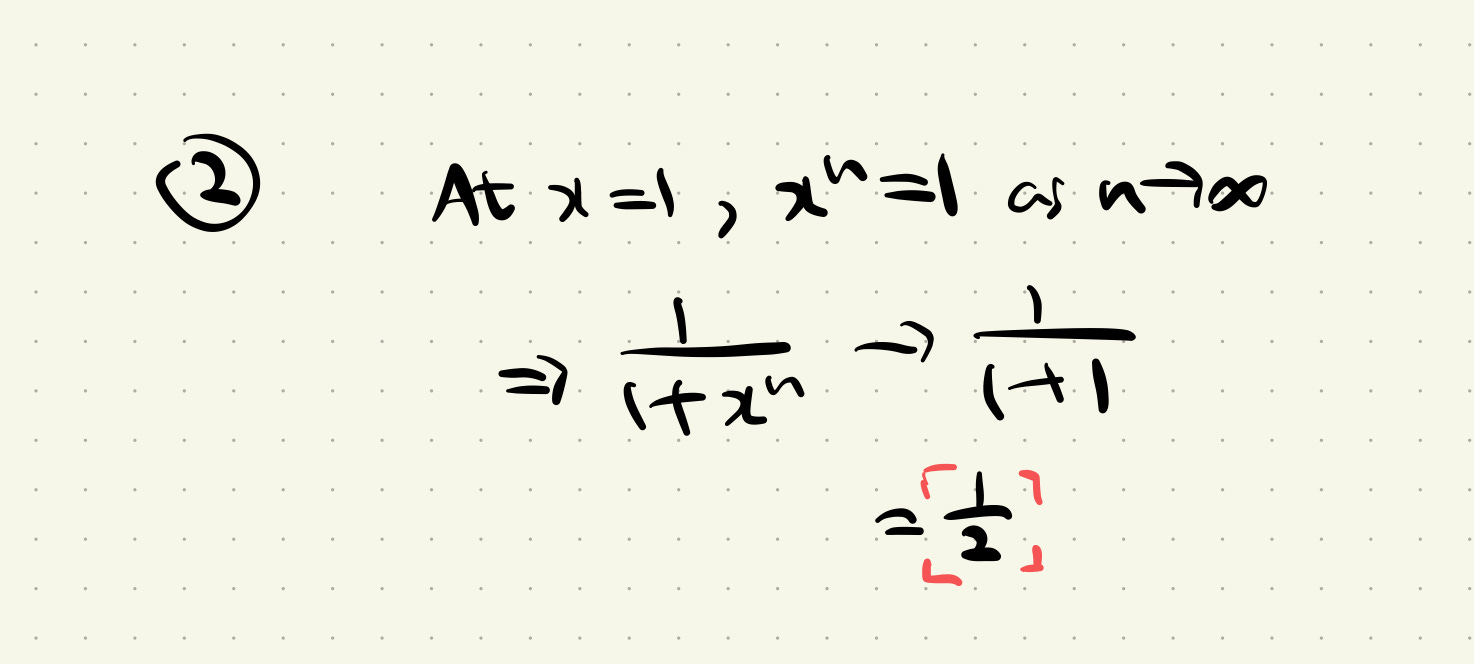 ② At x=1, xⁿ=1 as n→∞
⇒ 1/(1+xⁿ) → 1/(1+1)
= 1/2